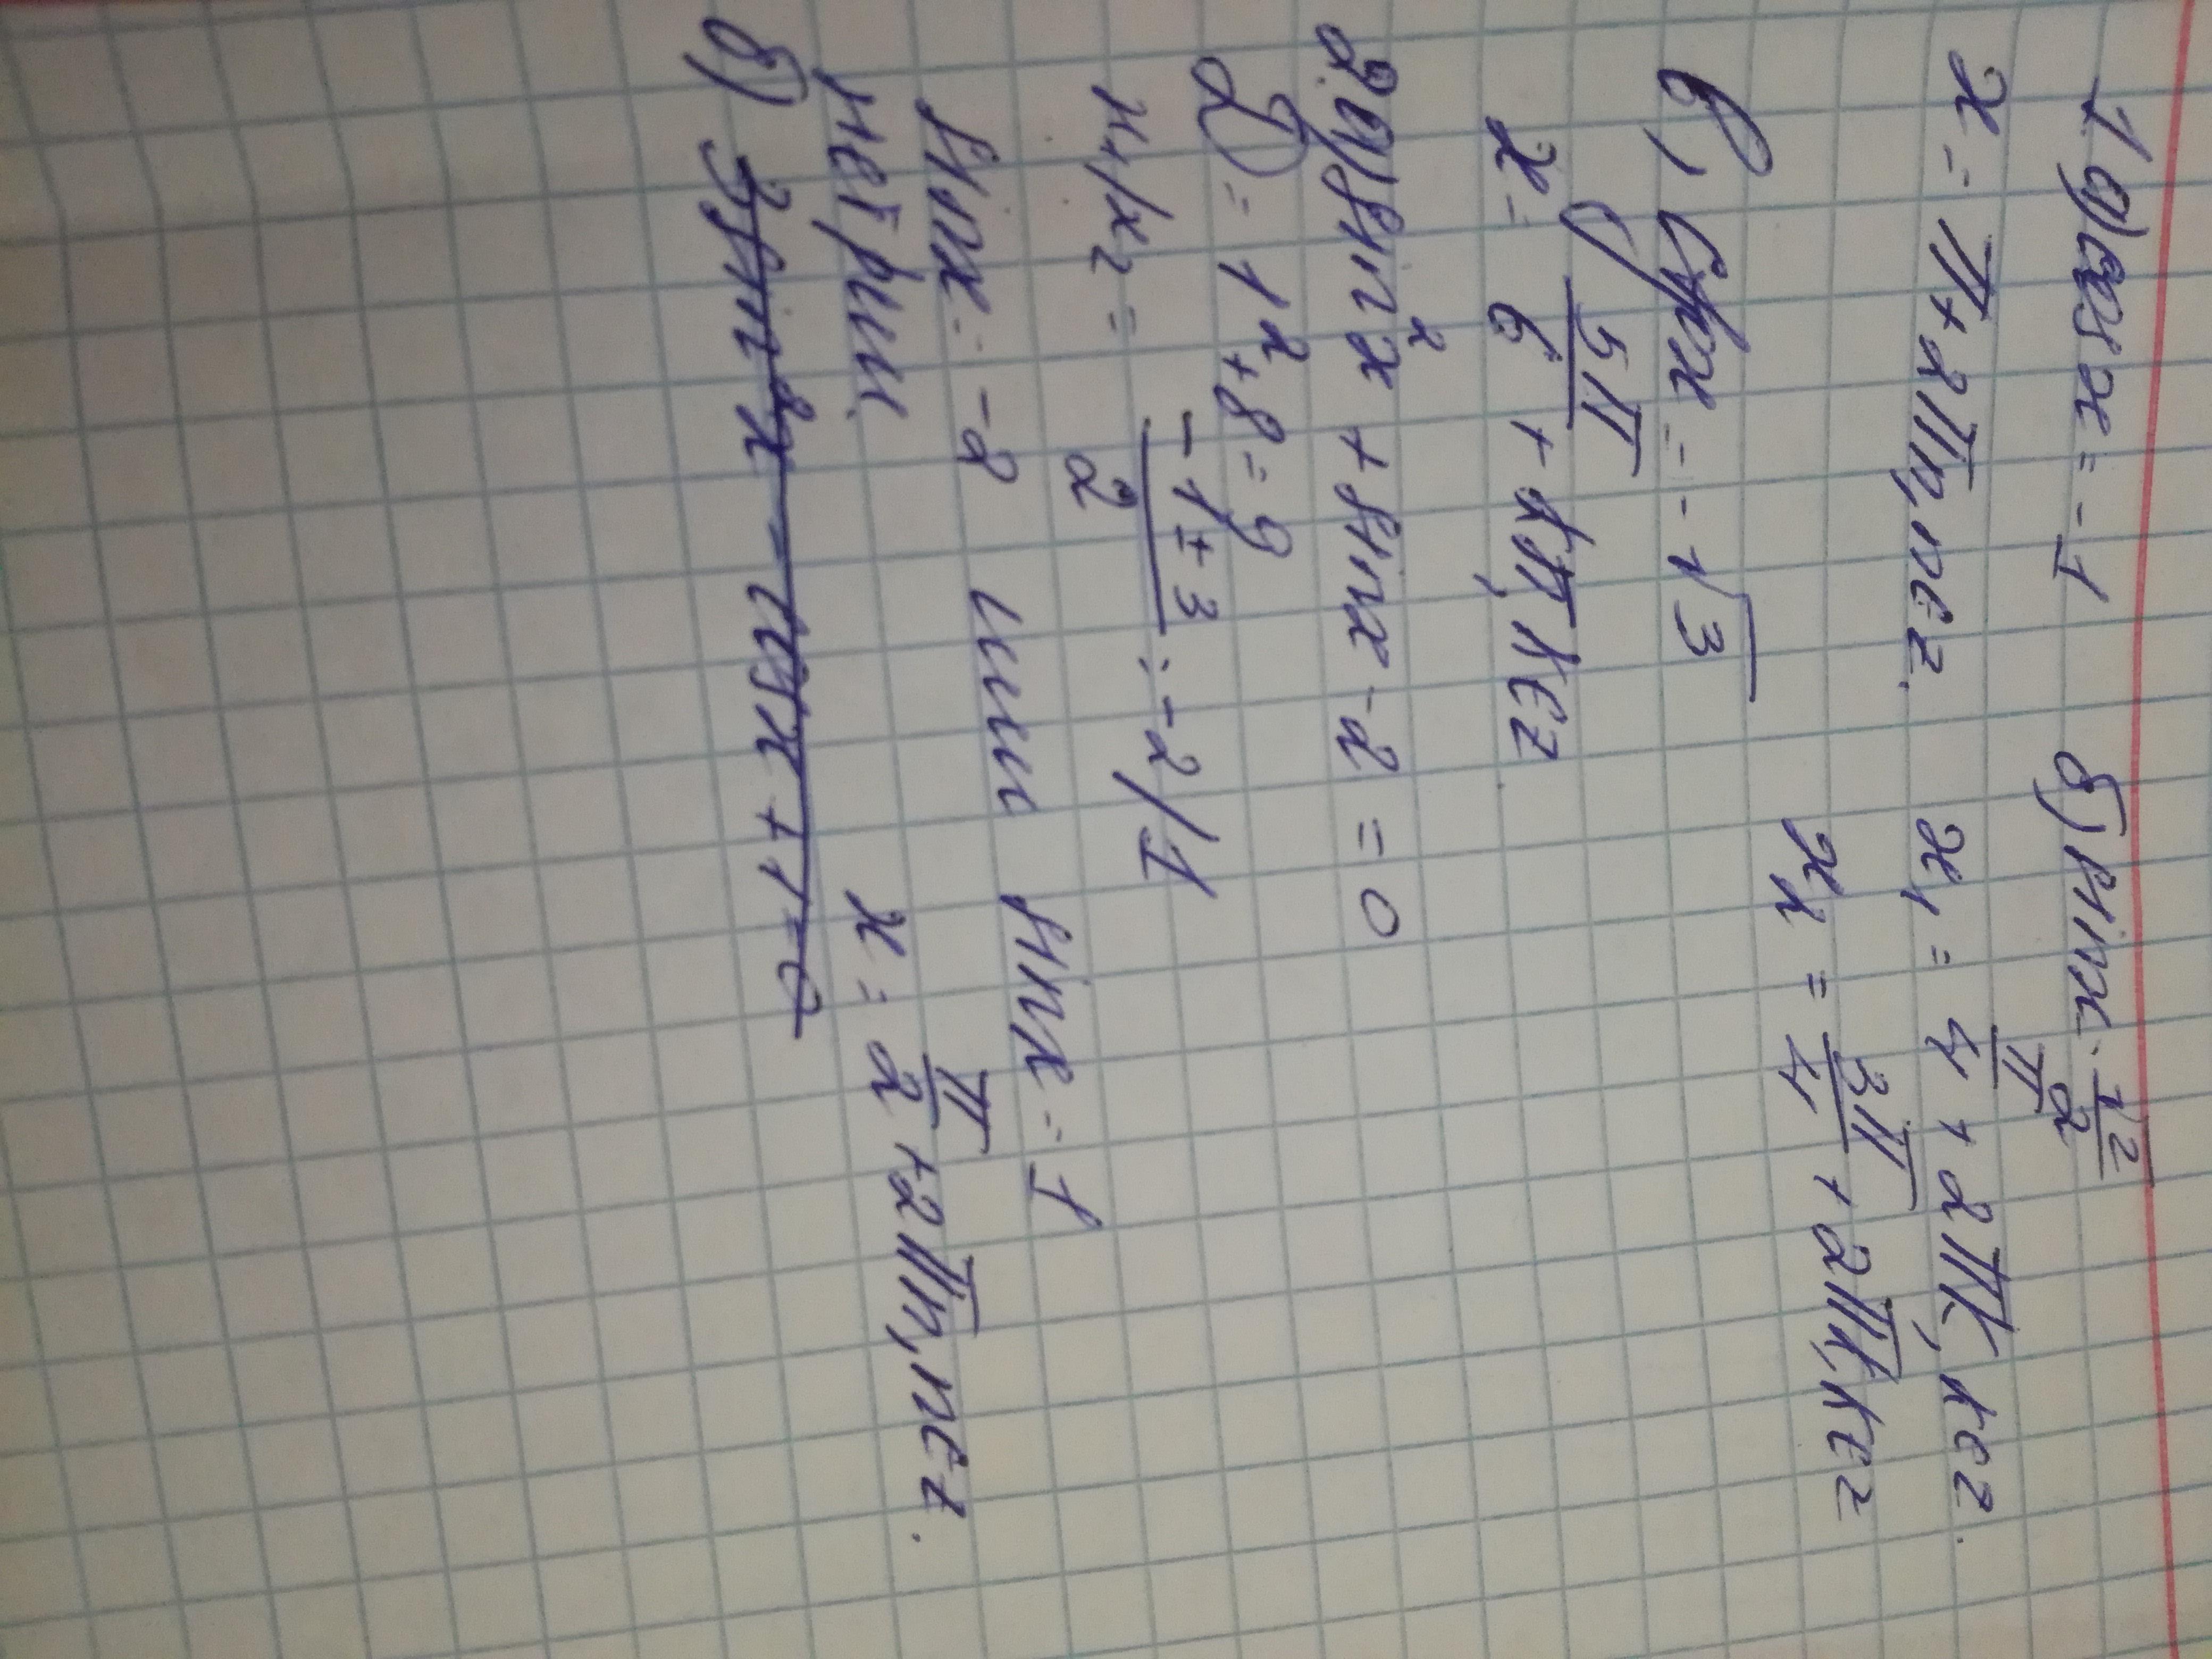 1 а) cosx = -1
x = π + 2πn, n∈z.
б) sinx = √2/2
x₁ = π/4 + 2πk, k∈z.
x₂ = 3π/4 + 2πk, k∈z
в) ctgx = -√3
x = 5π/6 + kπ, k∈z
2. а) sin²x + sinx - 2 = 0
D = 1² + 8 = 9
x₁/x₂ = (-1 ± 3)/2 = -2/1
sinx = -2 или sinx = 1
нет реш. x = π/2 + 2πn, n∈z.
б) 3sin²x - cosx + 1 = 0